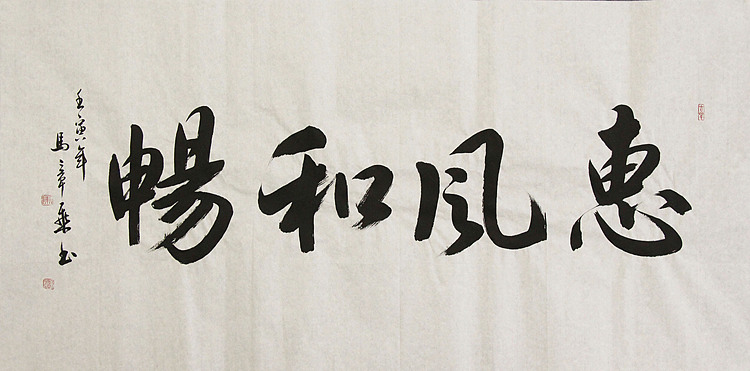 惠风和暢
壬寅年
馬章乘书